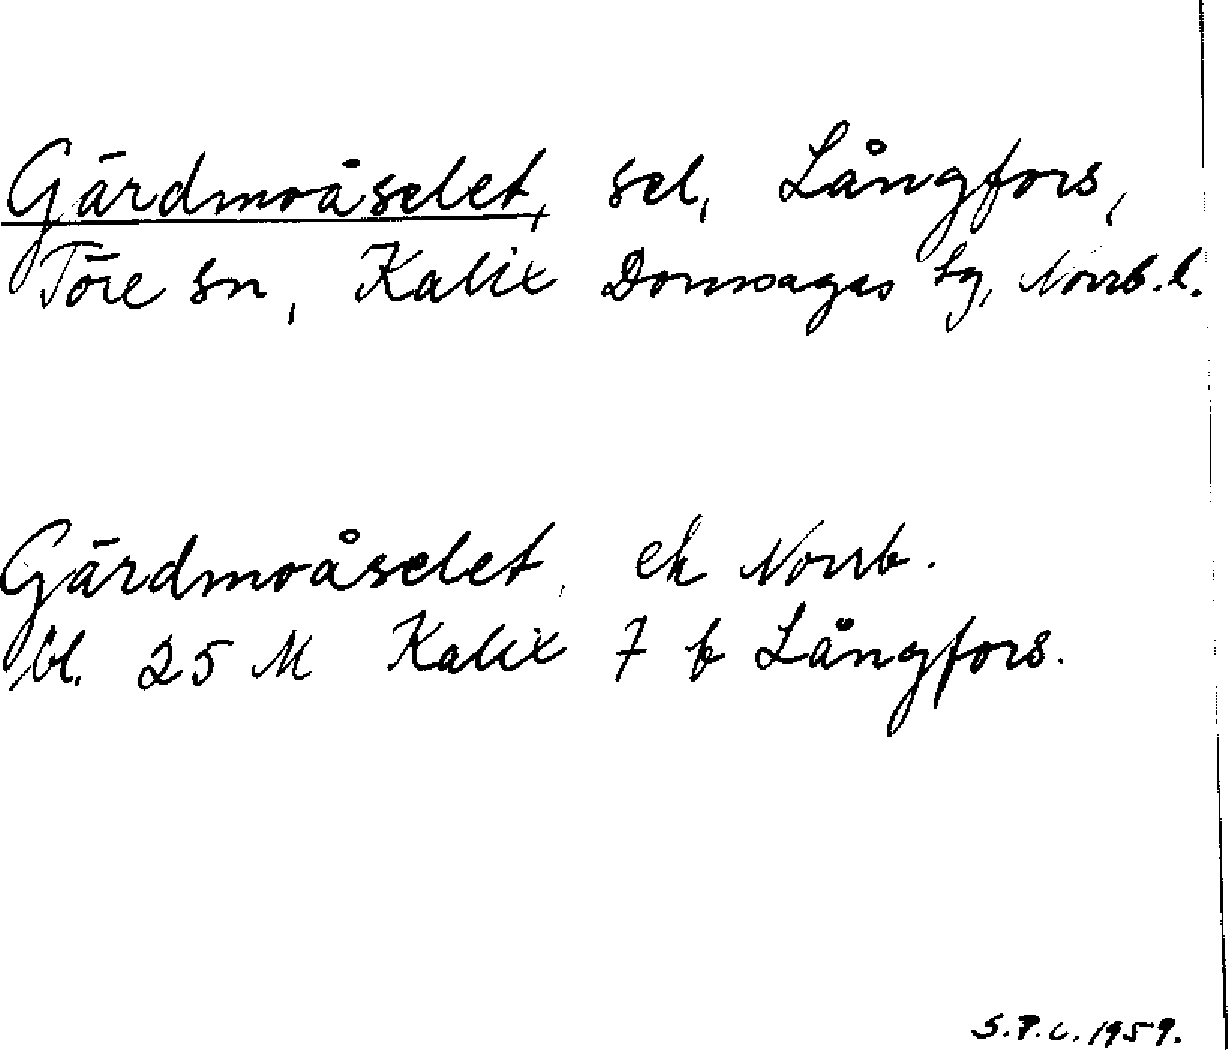 Gärdmoåselet, sel, Långfors,
Töre sn, Kalix Domsagas tg, Norrb.l.
Gärdmoåselet, ek Norrb.
bl. 25 M Kalix 7 b Långfors.
S.P.C. 1959.